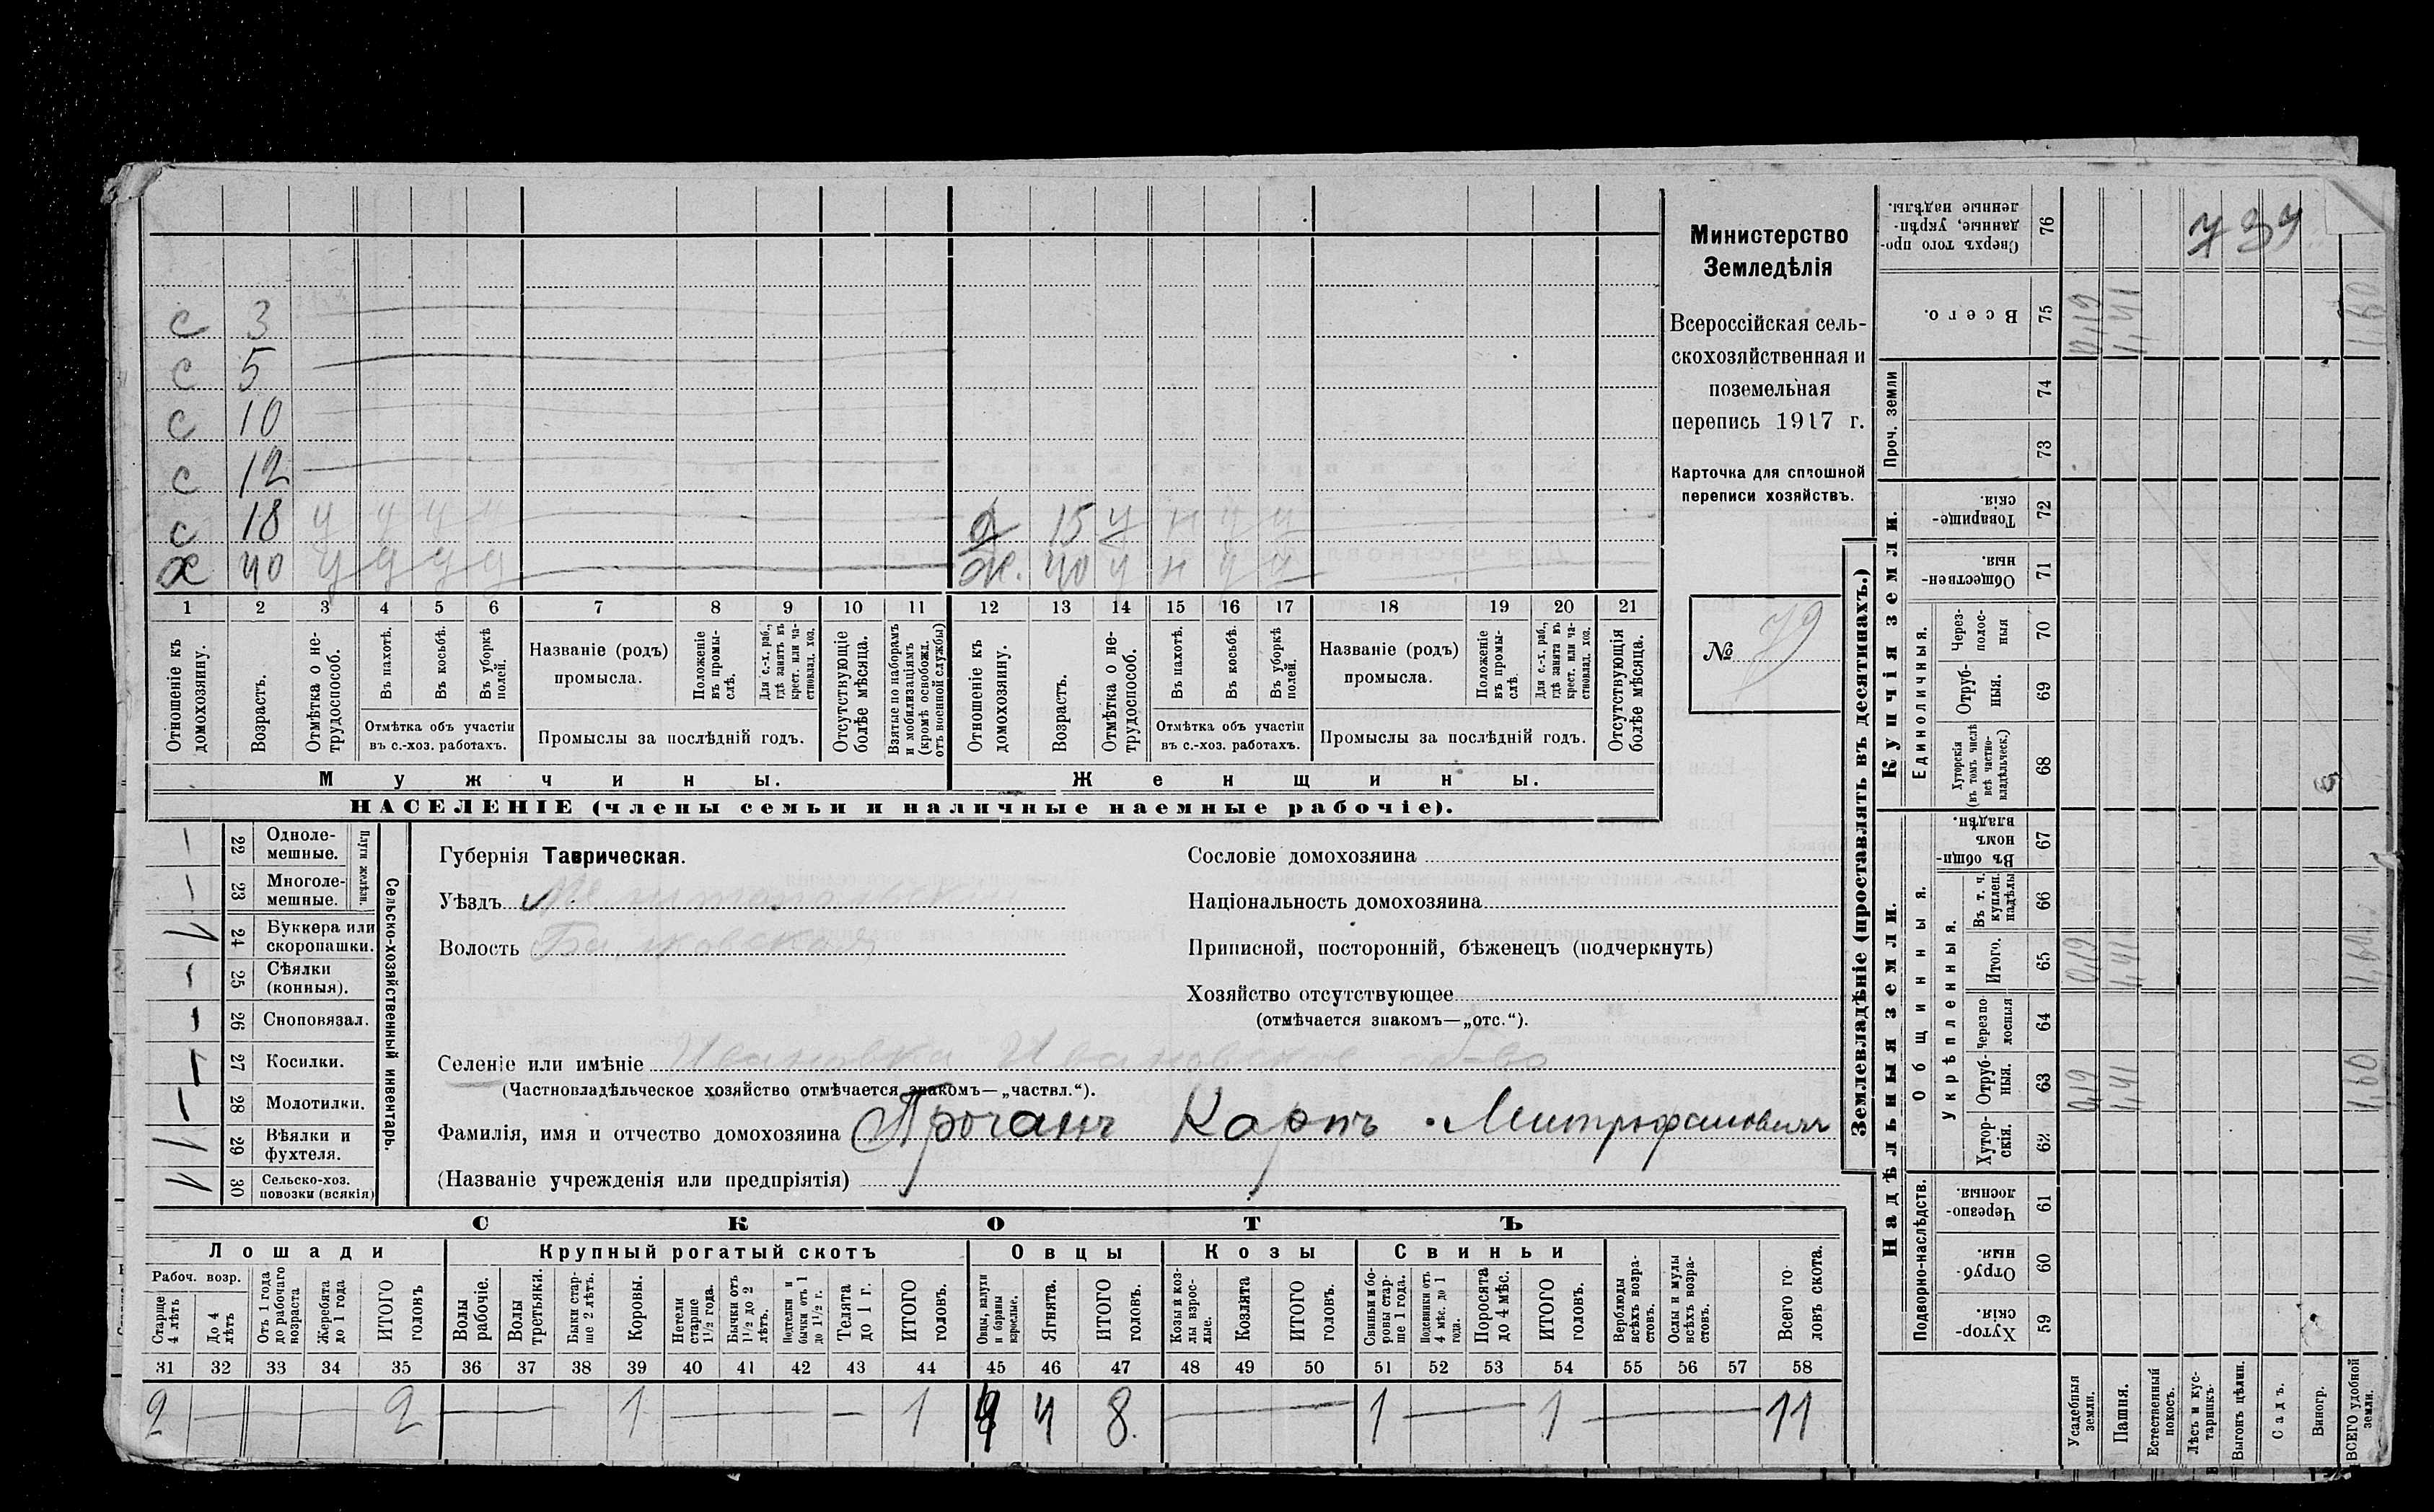 с 3
с 5
с 10
с 12
с 18 у у у у
х 40 у у у у
д 15 у н у у
ж. 40 у н у у
1 2 3 4 5 6 7 8 9 10 11 12 13 14 15 16 17 18 19 20 21
Отношеніе къ домохозяину.
Возрастъ.
Отмѣтка о нетрудоспособ.
Въ пахотѣ.
Въ косьбѣ.
Въ уборкѣ полей.
Отмѣтка объ участіи въ с.-хоз. работахъ.
Названіе (родъ) промысла.
Положеніе въ промыслѣ.
Для с.-х. раб., гдѣ занятъ въ крест. или частновлад. хоз.
Промыслы за послѣдній годъ.
Отсутствующіе болѣе мѣсяца.
Взятые по наборамъ и мобилизаціямъ (кромѣ освобожд. отъ военной службы)
Отношеніе къ домохозяину.
Возрастъ.
Отмѣтка о нетрудоспособ.
Въ пахотѣ.
Въ косьбѣ.
Въ уборкѣ полей.
Отмѣтка объ участіи въ с.-хоз. работахъ.
Названіе (родъ) промысла.
Положеніе въ промыслѣ.
Для с.-х. раб., гдѣ занята въ крест. или частновлад. хоз.
Промыслы за послѣдній годъ.
Отсутствующія болѣе мѣсяца.
Мужчины.
Женщины.
НАСЕЛЕНІЕ (члены семьи и наличные наемные рабочіе).
Министерство
Земледѣлія
Всероссійская сель-
скохозяйственная и
поземельная
перепись 1917 г.
Карточка для сплошной
переписи хозяйствъ.
№ 79
22 Одноле-мешные.
23 Многоле-мешные.
Плуги желѣзн.
24 Буккера или скоропашки.
25 Сѣялки (конныя).
26 Сноповязал.
27 Косилки.
28 Молотилки.
29 Вѣялки и фухтеля.
30 Сельско-хоз. повозки (всякія)
Сельско-хозяйственный инвентарь.
Губернія Таврическая.
Уѣздъ Мелитопольскій
Волость Балковская
Сословіе домохозяина
Національность домохозяина
Приписной, посторонній, бѣженецъ (подчеркнуть)
Хозяйство отсутствующее
(отмѣчается знакомъ—„отс.“).
Селеніе или имѣніе Ивановка Ивановское об-во
(Частновладѣльческое хозяйство отмѣчается знакомъ—„частвл.“).
Фамилія, имя и отчество домохозяина Проганъ Карпъ Митрофановичъ
(Названіе учрежденія или предпріятія)
СКОТЪ
Лошади
Крупный рогатый скотъ
Овцы
Козы
Свиньи
Рабоч. возр.
Старше 4 лѣтъ
До 4 лѣтъ
Отъ 1 года до рабочаго возраста
Жеребята до 1 года
ИТОГО головъ
Волы рабочіе.
Волы третьяки.
Быки старше 2 лѣтъ.
Коровы.
Нетели старше 1½ года.
Бычки отъ 1½ до 2 лѣтъ.
Подтелки и бычки отъ 1 до 1½ г.
Телята до 1 г.
ИТОГО головъ.
Овцы, валухи и бараны взрослые.
Ягнята.
ИТОГО головъ.
Козы и козлы взрослые.
Козлята
ИТОГО головъ.
Свиньи и боровы старше 1 года.
Подсвинки отъ 4 мѣс. до 1 года.
Поросята до 4 мѣс.
ИТОГО головъ.
Верблюды всѣхъ возрастовъ.
Ослы и мулы всѣхъ возрастовъ.
Всего головъ скота.
31 32 33 34 35 36 37 38 39 40 41 42 43 44 45 46 47 48 49 50 51 52 53 54 55 56 57 58
2 2 1 1 4 4 8. 1 1 11
Землевладѣніе (проставлять въ десятинахъ.)
Надѣльныя земли.
Купчія земли.
Проч. земли
Подворно-наслѣдств.
Общинныя.
Укрѣпленныя.
Единоличныя.
Сверхъ того проданные, укрѣпленные надѣлы. 76
Всего. 75
74
73
Товарищескія. 72
Общественныя. 71
Черезполосныя 70
Отрубныя. 69
Хуторскія (въ томъ числѣ всѣ частновладѣльческ.) 68
Въ общинномъ владѣн. 67
Въ т. ч. куплен. надѣлы 66
Итого. 65
Черезполосныя 64
Отрубныя. 63
Хуторскія. 62
Черезполосныя. 61
Отрубныя. 60
Хуторскія. 59
Усадебныя земли.
Пашня.
Естественный покосъ.
Лѣсъ и кустарникъ.
Выгонъ цѣлин.
Садъ.
Виногр.
ВСЕГО удобной земли.
737
0,19 1,41 1,60
0,19 1,41 1,60
0,19 1,41 1,60